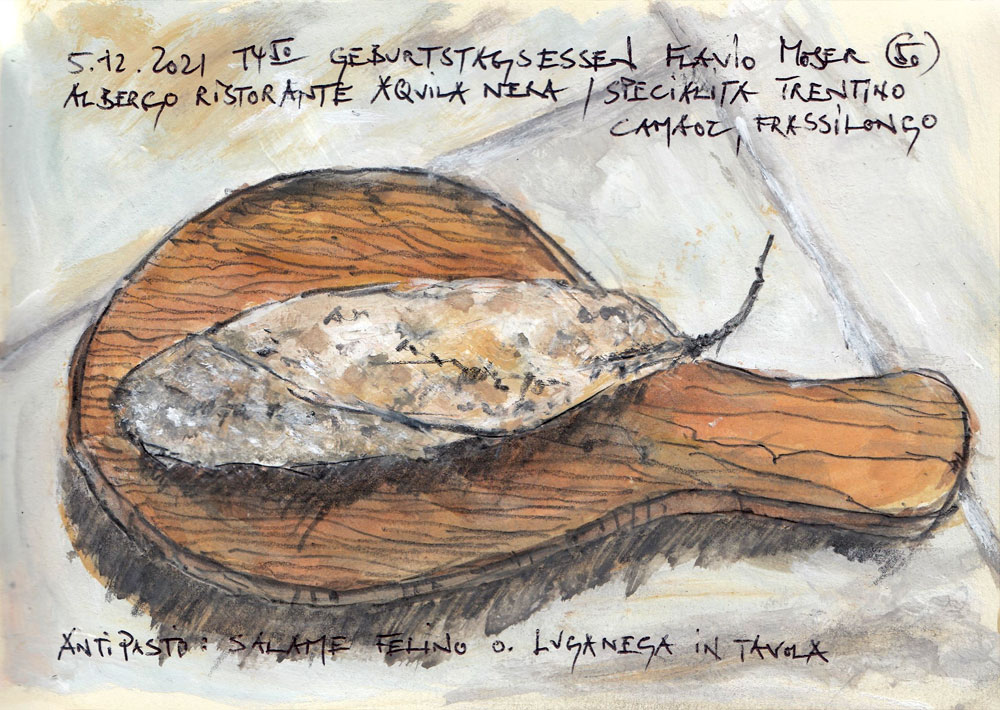 5.12.2021 GEBURTSTAGSESSEN FLAVIO MOSER (50)
ALBERGO RISTORANTE AQVILA NERA / SPECIALITA TRENTINO
FRASSILONGO
ANTIPASTO: SALAME FELINO O. LUGANEGA IN TAVOLA